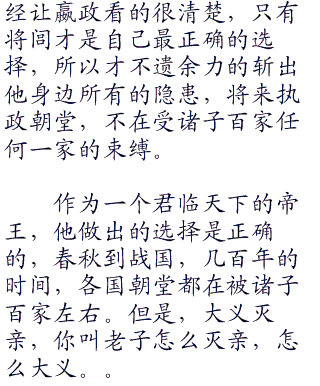 经让嬴政看的很清楚，只有
将闾才是自己最正确的选
择，所以才不遗余力的斩出
他身边所有的隐患，将来执
政朝堂，不在受诸子百家任
何一家的束缚。
作为一个君临天下的帝
王，他做出的选择是正确
的，春秋到战国，几百年的
时间，各国朝堂都在被诸子
百家左右。但是，大义灭
亲，你叫老子怎么灭亲，怎
么大义。。